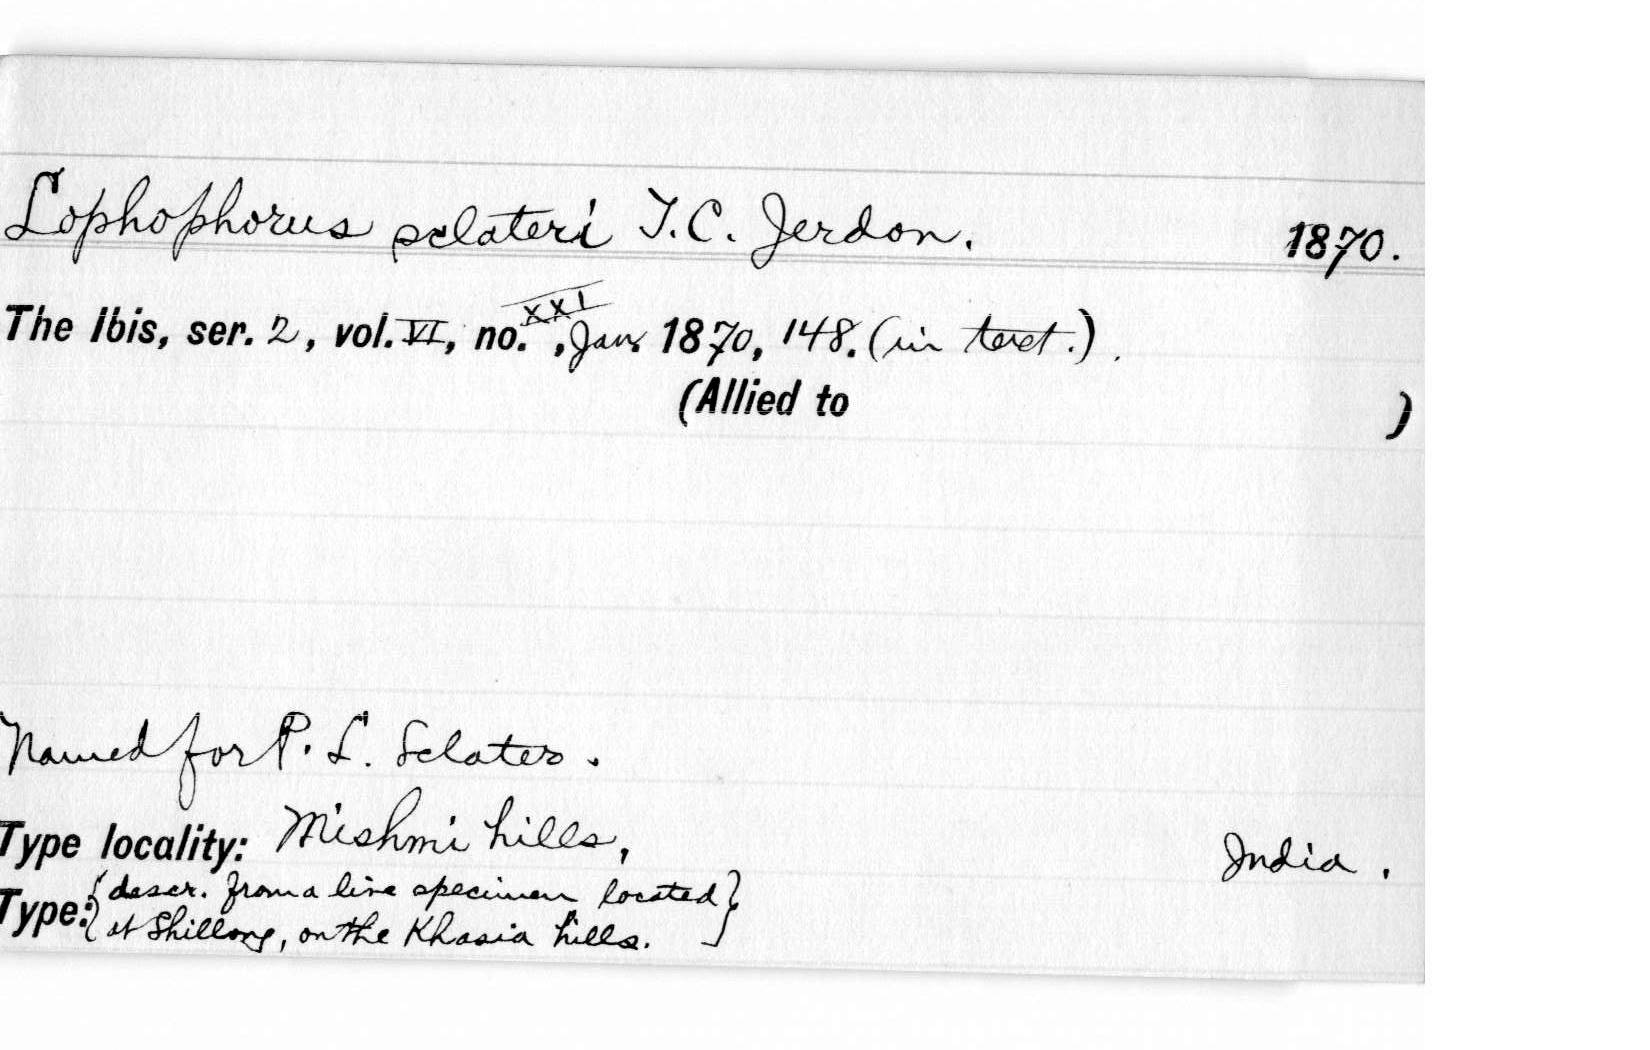 Lophophorus sclateri T.C. Jerdon. 1870.
The Ibis, ser. 2, vol. VI, no. XXI, Jan. 1870, 148. (in text.).
(Allied to )
Named for P. L. Sclater.
Type locality: Mishmi hills, India.
Type: {descr. from a live specimen located}
{at Shillong, on the Khasia hills.}